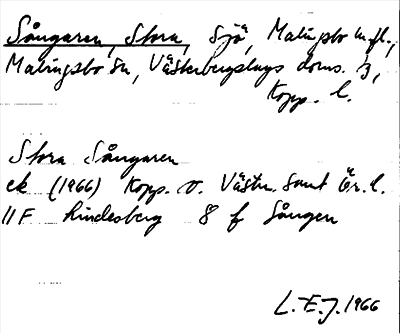 Sångaren, Stora, Sjö, Malingsbo m.fl.,
Malingsbo sn, Västerbergslags doms. 3,
Kopp. l.
Stora Sångaren
ek (1966) Kopp. o. Västm. samt Ör. l.
11F Lindesberg 8 f Sången
L.E.J. 1966